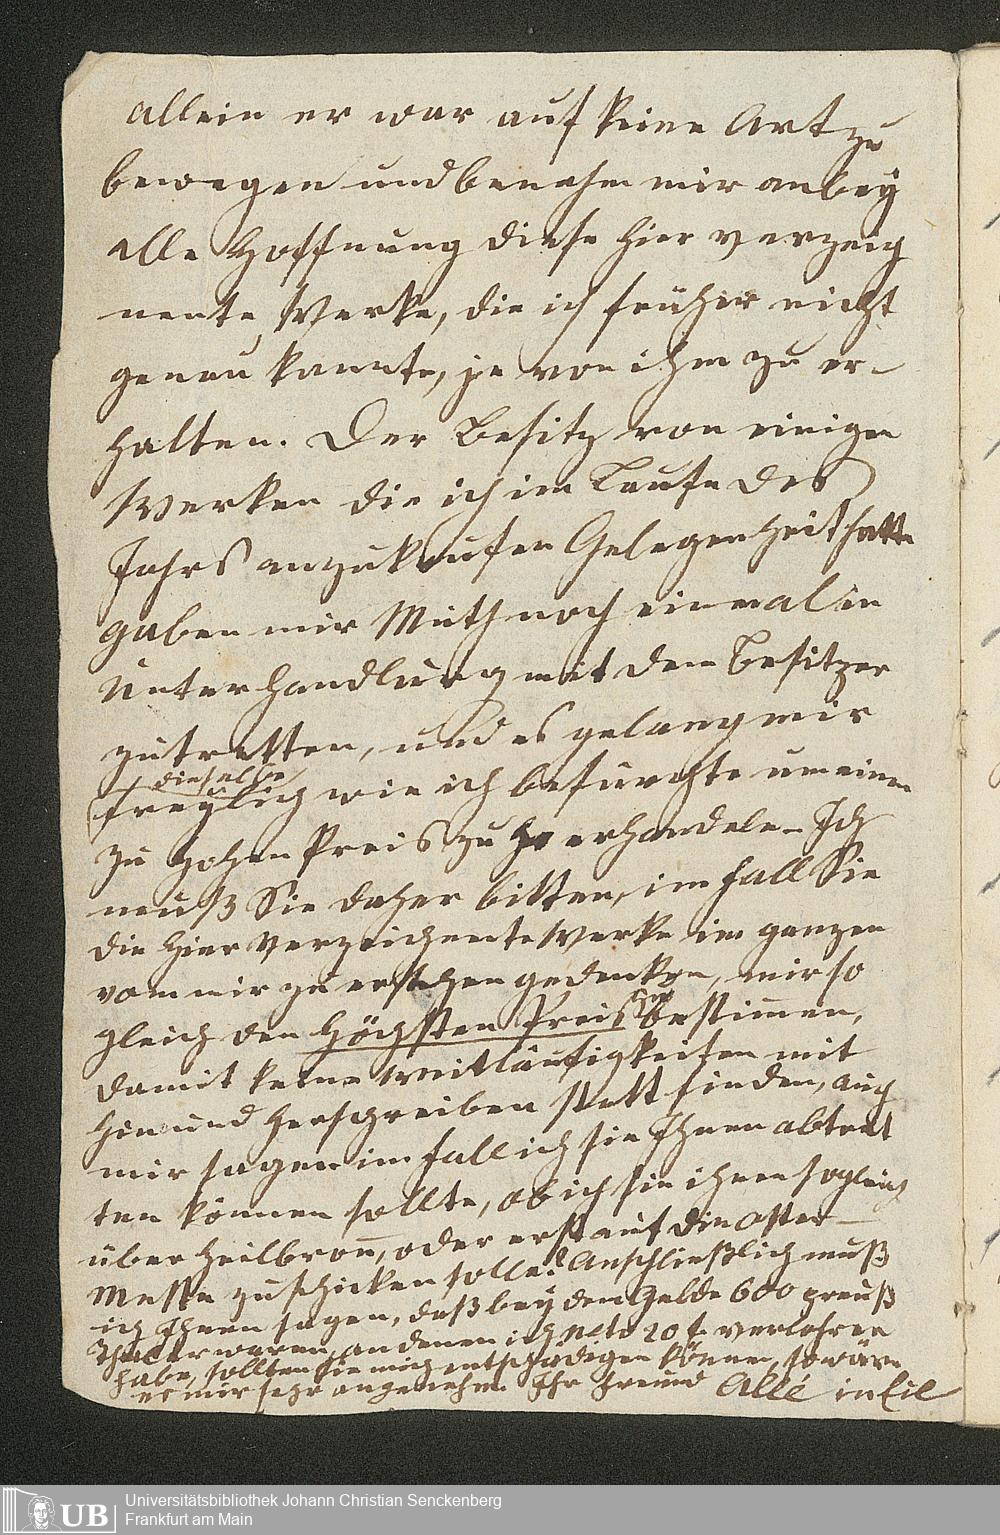 allein er war auf keine Art zu
bewegen und benahm mir anbey
alle Hoffnung diese hier verzeig
nente Werke, die ich früher nicht
genau kannte, je von ihm zu er-
halten. Der Besitz von einigen
Werken die ich im Laufe des
Jahrs anzukaufen Gelegenheit hatte
gaben mir Muth noch einmal in
Unterhandlung mit dem Besitzer
zu tretten, und es gelang mir
dieselbe
freylich wie ich befürchte um einen
zu hohen Preis zu erhandeln. Ich
muß Sie daher bitten, im Fall Sie
die hier verzeichnente Werke im ganzen
von mir zu erstehen gedenken, mir so
gleich den höchsten Preis zu bestimmen,
damit keine Weitläufigkeiten mit
hin und herschreiben statt finden, auch
mir sagen im Fall ich sie Ihnen abtret
ten können sollte, ob ich sie ihnen sogleich
über Heilbronn, oder erst auf die Oster-
Messe zu schicken solle? Anschließlich muß
ich Ihnen sagen, daß bey den Gelde 600 preuß
Thaler waren, an denen ich 20 f. verlohren
habe, sollten Sie mich entschädigen können, so wäre
es mir sehr angenehm. Ihr Freund Allé in Eil
Universitätsbibliothek Johann Christian Senckenberg
UB Frankfurt am Main